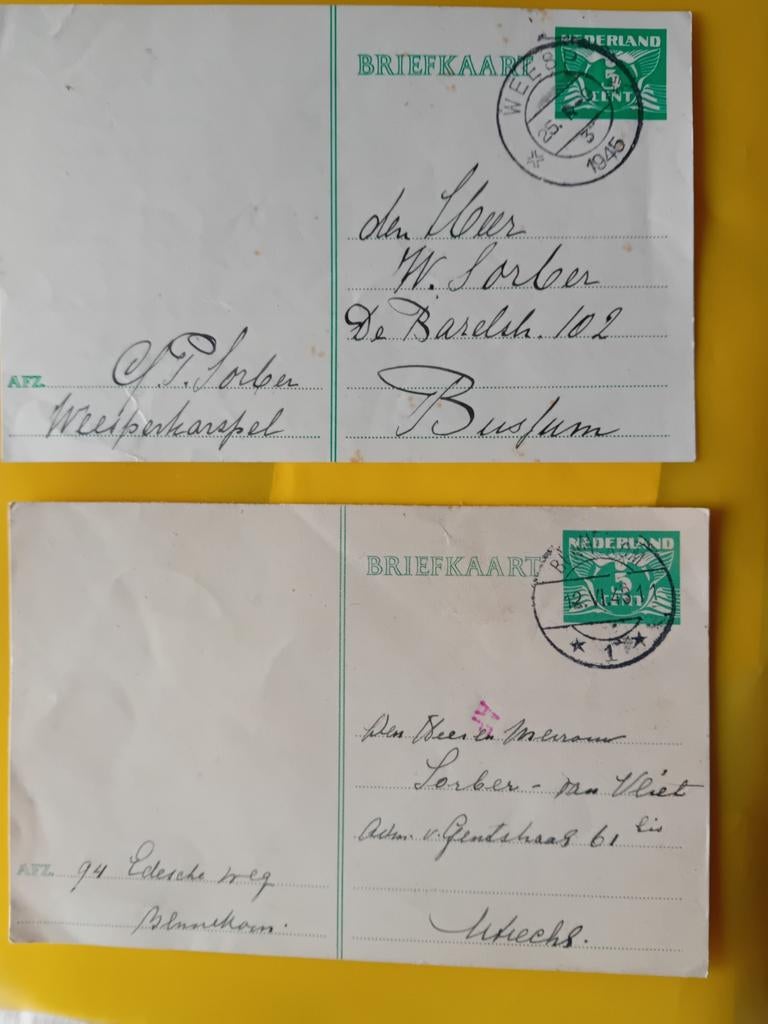 BRIEFKAART
NEDERLAND
5 CENT
WEESP
1945
den Heer
W. Sorber
De Bazelstr. 102
Bussum
AFZ. P. Sorber
Weesperkarspel
BRIEFKAART
NEDERLAND
5 CENT
12.VI.45.11
1
Den Heer en Mevrouw
Sorber - van Vliet
Adm. v. Gentstraat 61 bis
Utrecht.
AFZ. 94 Edesche weg
Bennekom.